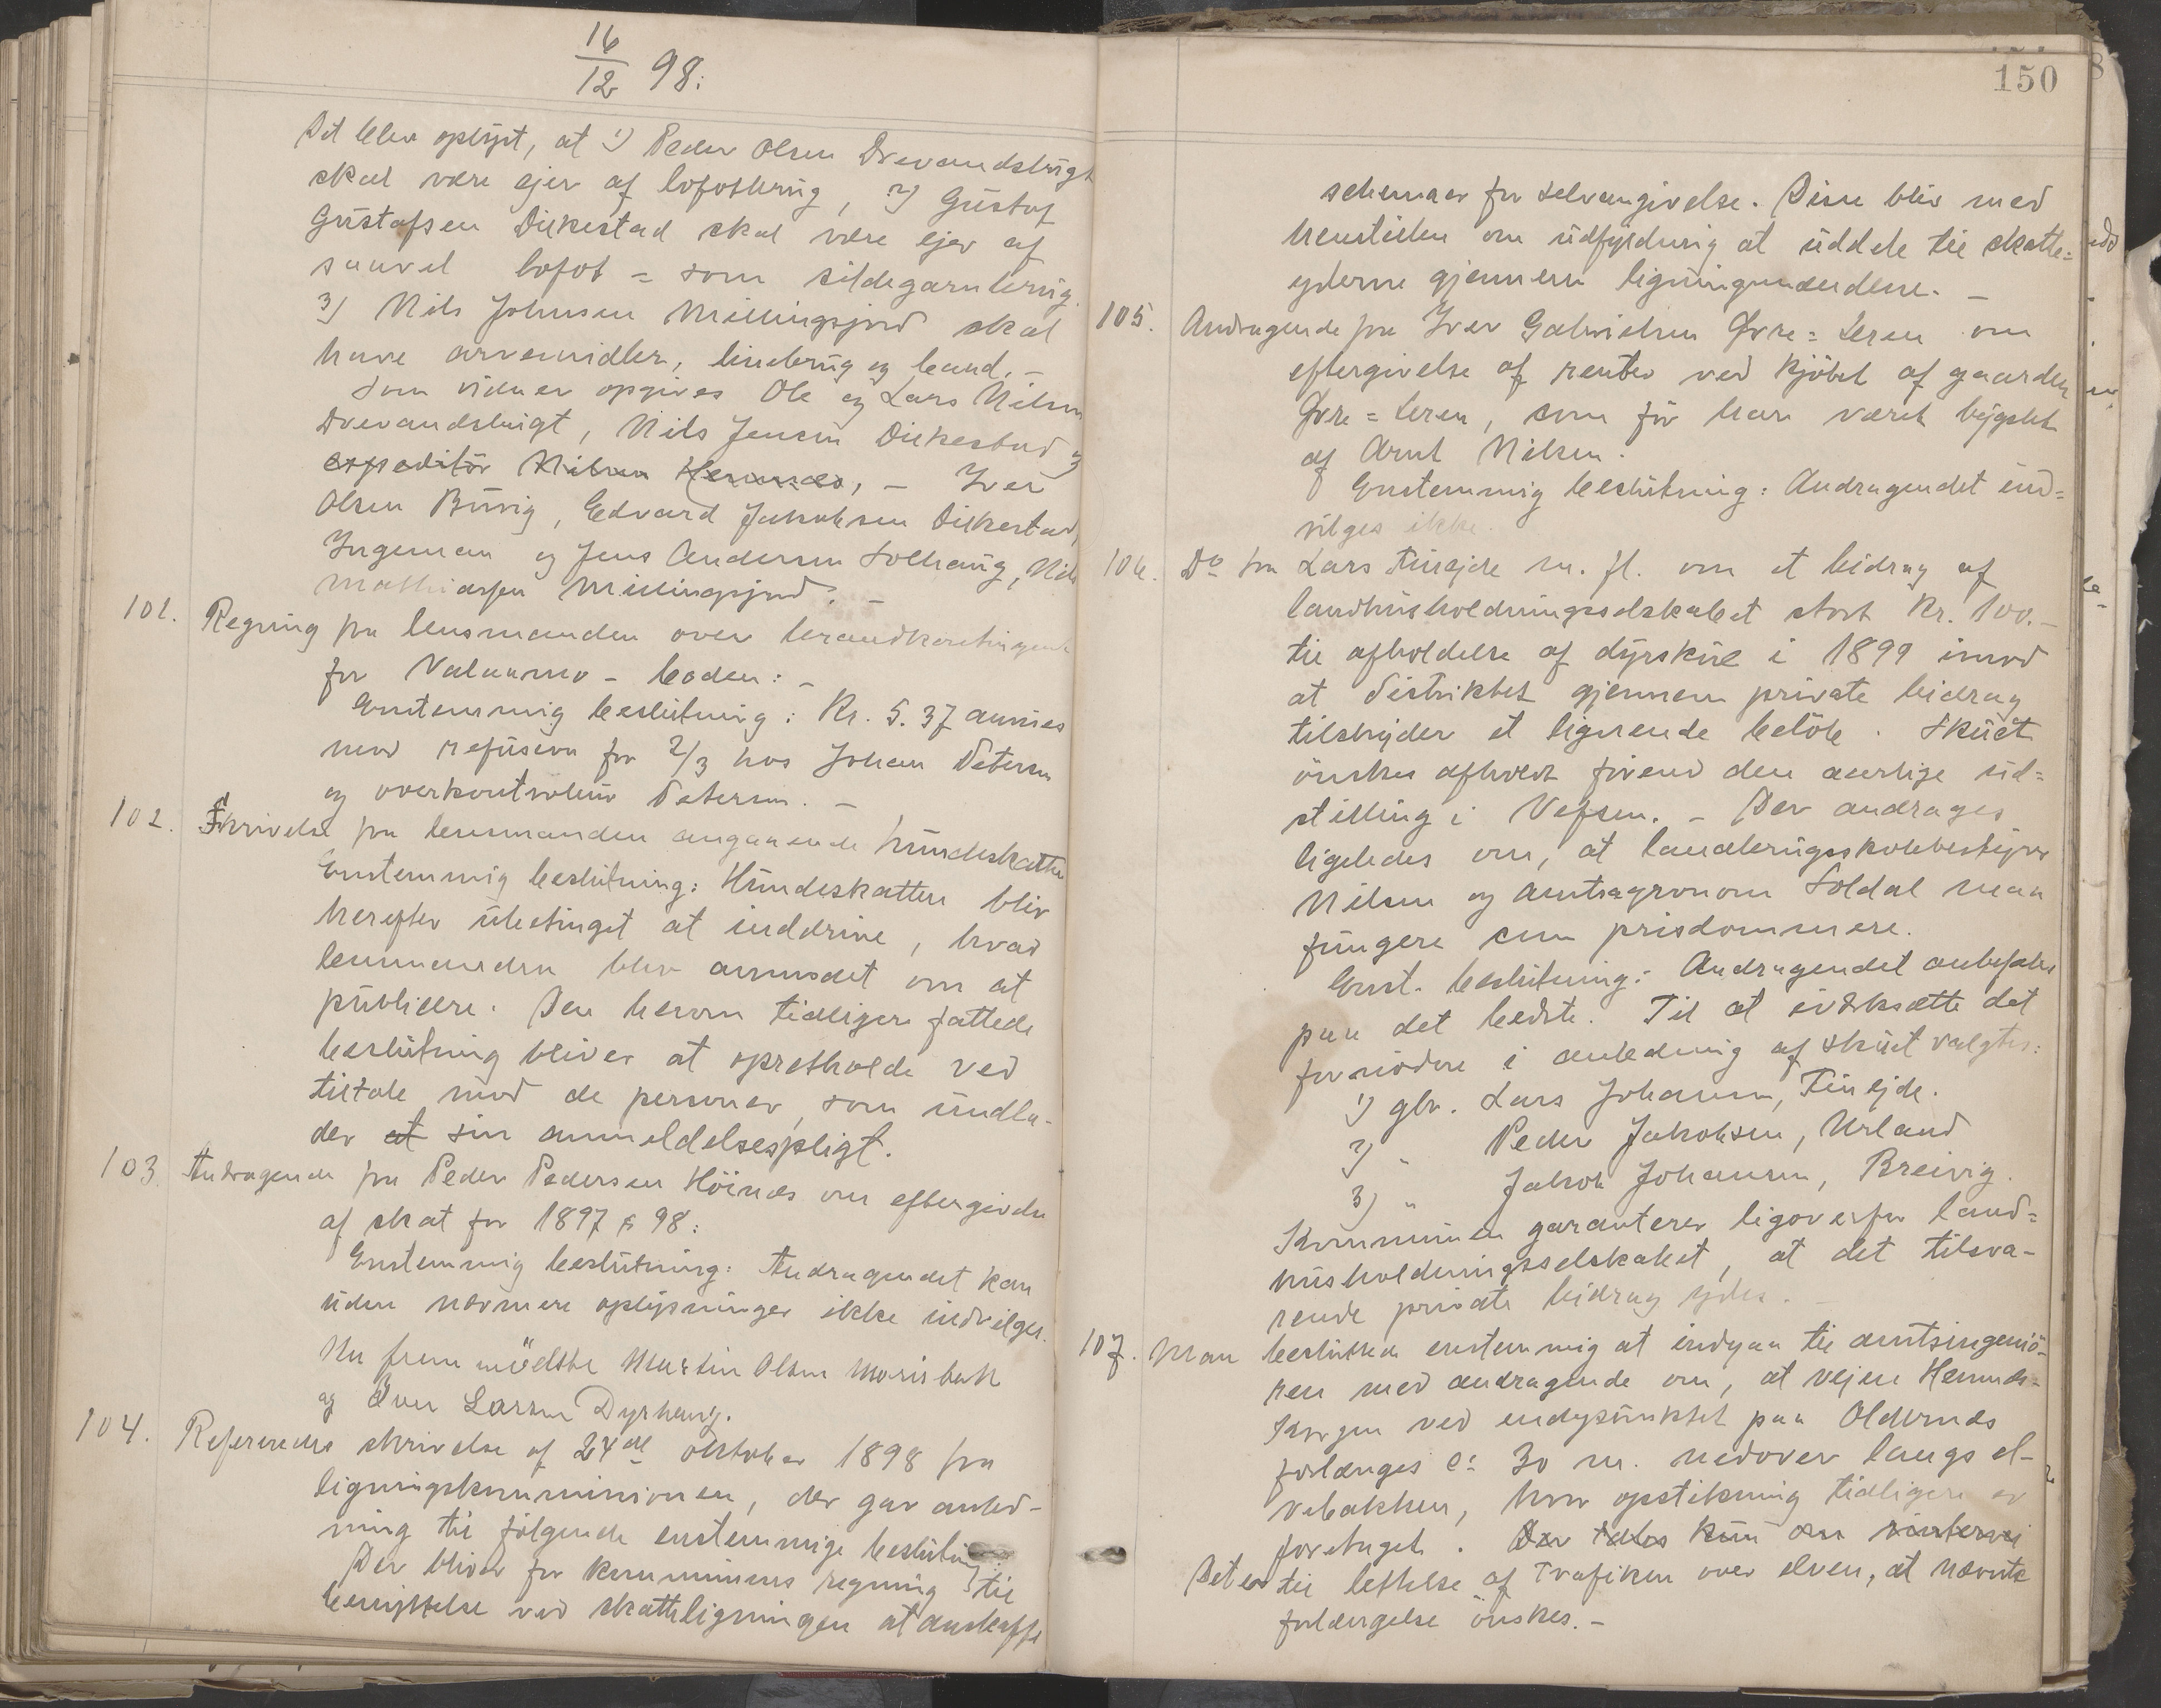 16/12 98:
Det blev oplyst, at 1) Peder Olsen Drevandsbrügt
skal være ejer af lofotbrüg, 2) Güstaf
Güstafsen Dilkestad skal være ejer af
saavel lofot- som sildegarnbrüg.
3) Nils Johnsen Millingsjord skal
have arvemidler, linebrüg og land. -
Som vidner opgives Ole og Lars Nilsen
Drevandsbrügt, Nils Jensen Dilkestad og
expeditör Nilsen Hemnæs, - Iver
Olsen Büvig, Edvard Jakobsen Dilkestad,
Ingeman og Jens Andersen Solhaüg, Nils
Mathiassen Millingsjord. -
101. Regning fra lensmanden over brandkontingent
for Valaamo-boden: -
Enstemmig beslütning: Kr. 5.37 anvises
mod refüsion for 2/3 hos Johan Petersen
og overkontrollör Petersen. -
102. Skrivelse fra lensmanden angaaende hündeskatten
Enstemmig beslütning: Hündeskatten bliv
herefter übetinget at inddrive, hvad
lensmanden blev anmodet om at
püblicere. Den herom tidligere fattede
beslütning bliver at opretholde ved
tiltale mod de personer, som ündla-
der at sin anmeldelsespligt.
103. Andragende fra Peder Pedersen Höinæs om eftergivelse
af skat for 1897 & 98:
Enstemmig beslütning: Andragendet kan
üden nærmere oplysninger ikke indvilges.
Nu fremmödte Martin Olsen Morisbak
og Iver Larsen Dyrhaug.
104. Refereredes skrivelse af 24de oktober 1898 fra
ligningskommissionen, der gav anled-
ning til fölgende enstemmige beslütning:
Der bliver for kommünens regning til
benyttelse ved skatteligningen at anskaffe
150
schemaer for selvangivelse. Disse blir med
henstillen om üdfyldning at üddele til skatte-
yderne gjennem ligningsmændene. -
105. Andragende fra Iver Gabrielsen Övre-Leren om
eftergivelse af renter ved kjöbet af gaarden
Övre-Leren, som för har været bygslet
af Arnt Nilsen.
Enstemmig beslütning: Andragendet ind-
vilges ikke.
106. Do fra Lars Finejde m. fl. om et bidrag af
landhüsholdningsselskabet stort Kr. 100. -
til afholdelse af dyrskue i 1899 imod
at distriktet gjennem private bidrag
tilskyder et lignende belöb. Sküet
önskes afholdt förend den aarlige üd-
stilling i Vefsen. - Der andrages
ligeledes om, at landbrügsskolebestyrer
Nilsen og amtsagronom Soldal maa
füngere som prisdommere.
Enst. beslütning: Andragendet anbefales
paa det bedste. Til at iverksætte det
fornödne i anledning af sküet valgtes:
1) gbr. Lars Johansen, Finejde.
2) " Peder Jakobsen, Urland
3) " Jakob Johansen, Breivig.
Kommünen garanterer ligeoverfor land-
hüsholdningsselskabet, at det tilsva-
rende private bidrag ydes. -
107. Man beslüttede enstemmig at indgaa til amtsingeniö-
ren med andragende om, at vejen Hemnæs-
Korgen ved endepünktet paa Oldernæs
forlænges ca 30 m. nedover langs el-
vebakken, hvor opstikning tidligere er
foretaget. Der tales kün om vintervei
Det er til lettelse af Trafiken over elven, at nævnte
forlængelse önskes. -